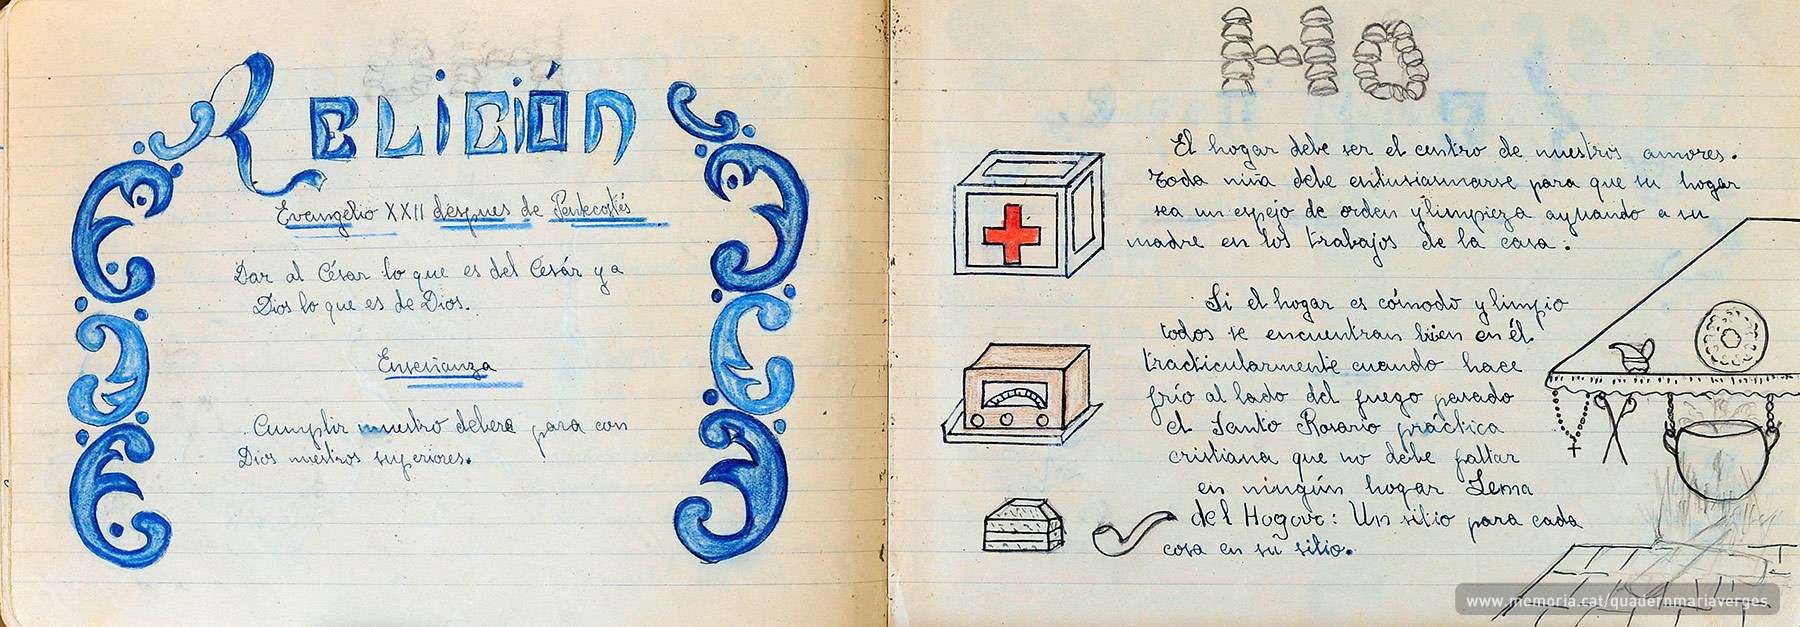 Religión
Evangelio XXII despues de Pentecostés
Dar al César lo que es del Cesár y a
Dios lo que es de Dios.
Enseñanza
Cumplir nuestro debere para con
Dios nuestros superiores.
HO
El hogar debe ser el centro de nuestros amores.
Toda niña debe entusiasmarse para que su hogar
sea un espejo de orden y limpieza ayuando a su
madre en los trabajos de la casa.
Si el hogar es cómodo y limpio
todos se encuentran bien en él
tracticularmente cuando hace
frío al lado del fuego pasado
el Santo Rosario práctica
cristiana que no debe faltar
en ningún hogar Lema
del Hogar: Un sitio para cada
cosa en su sitio.
www.memoria.cat/quadernmariaverges